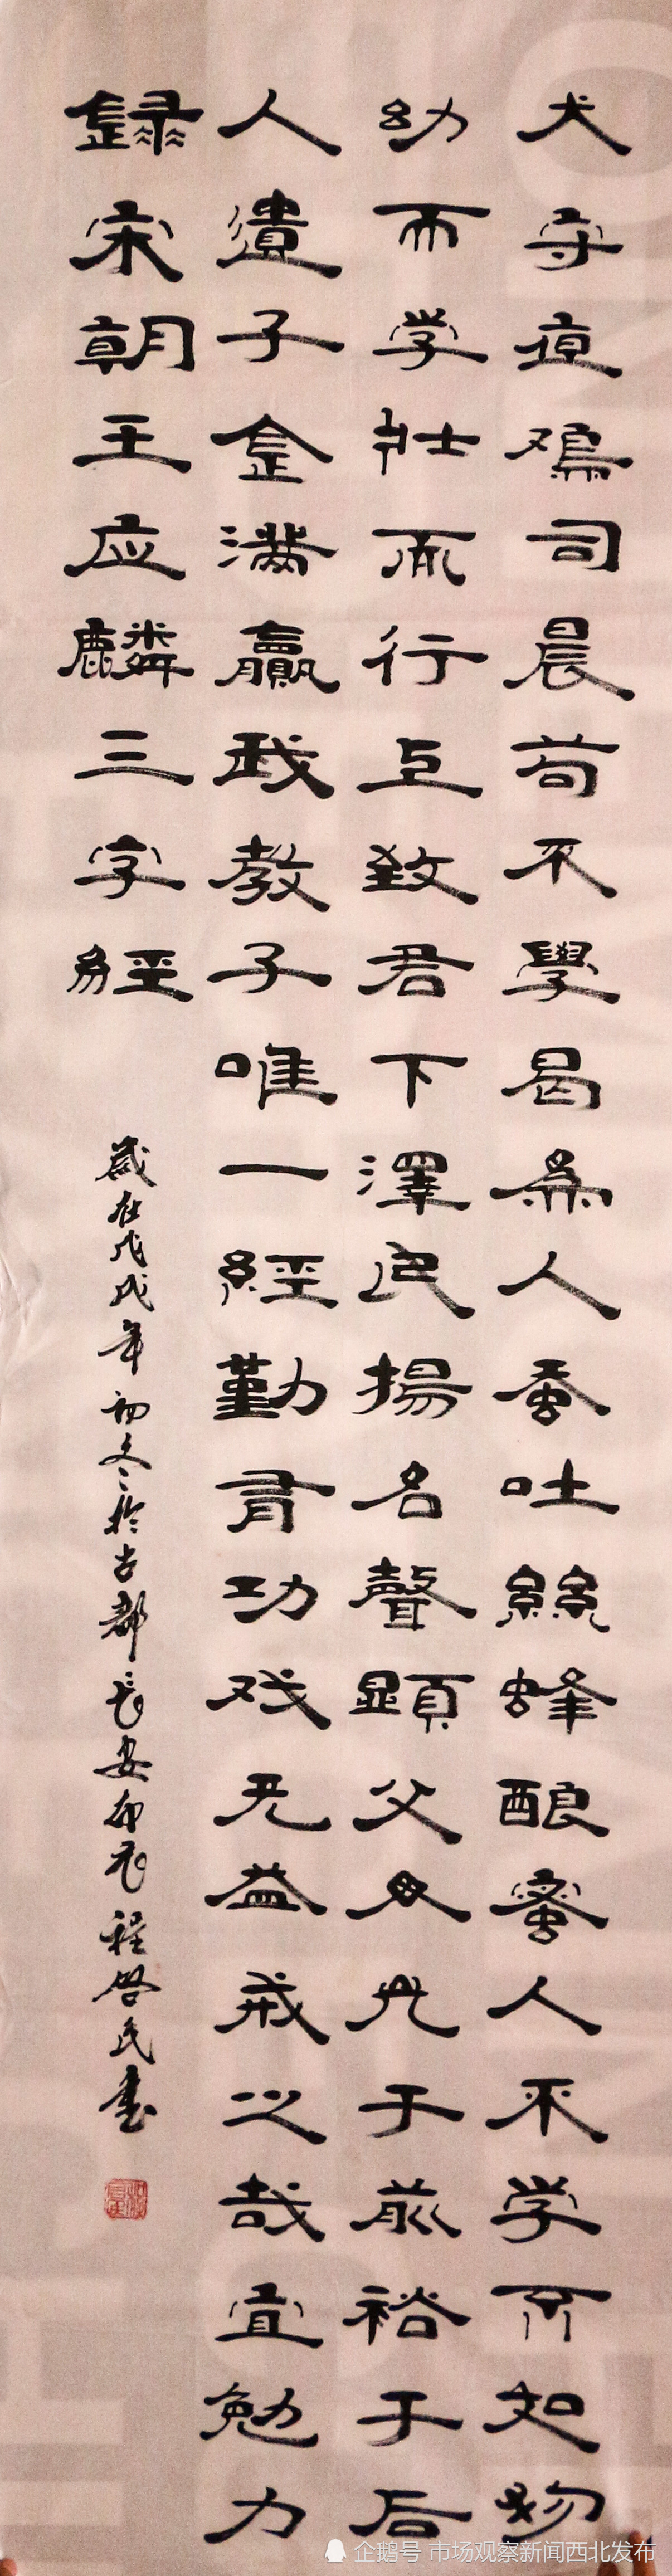 犬守夜鸡司晨苟不學曷為人蚕吐絲蜂酿蜜人不学不如物
幼而学壮而行上致君下澤民揚名聲顕父母光于前裕于后
人遺子金满赢我教子唯一經勤有功戏无益戒之哉宜勉力
録宋朝王应麟三字經
歲在戊戌年初冬於古都長安程啓民書
企鹅号 市场观察新闻西北发布